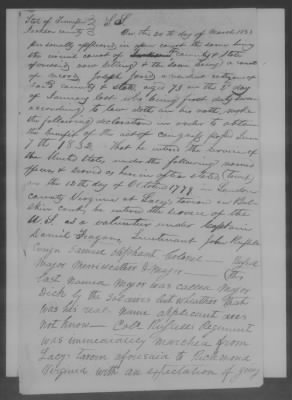 State of Tennessee } SS
Jackson county } On this 20th day of March 1833
personally appeared in open court the same being
the usual court of county & State
aforesaid now sitting & the same being a court
of record Joseph a resident citizen of
said county & state, aged 73 on the 2nd day
of January last who being first duly sworn
according to law doth on his oath make
the following declaration in order to obtain
the benefit of the act of congress passed June
7th 1832. That he entered the service of
the United States under the following named
officers & served as herein after stated, that
on the 12th day of October 1779 in Loudon
county Virginia at Lacy's tavern in
county he entered the service of the
U.S. as a volunteer under Captain
Daniel Feagans, Lieutenant John
Ensign Samuel Oliphant Colonel
Major Merriweather & Major (the
last named Major was called Major
Dick by the soldiers but whether that
was his real name applicant does
not know — Colo Russells Regiment
was immediately marched from
Lacys tavern aforesaid to Richmond
Virginia with an expectation of going